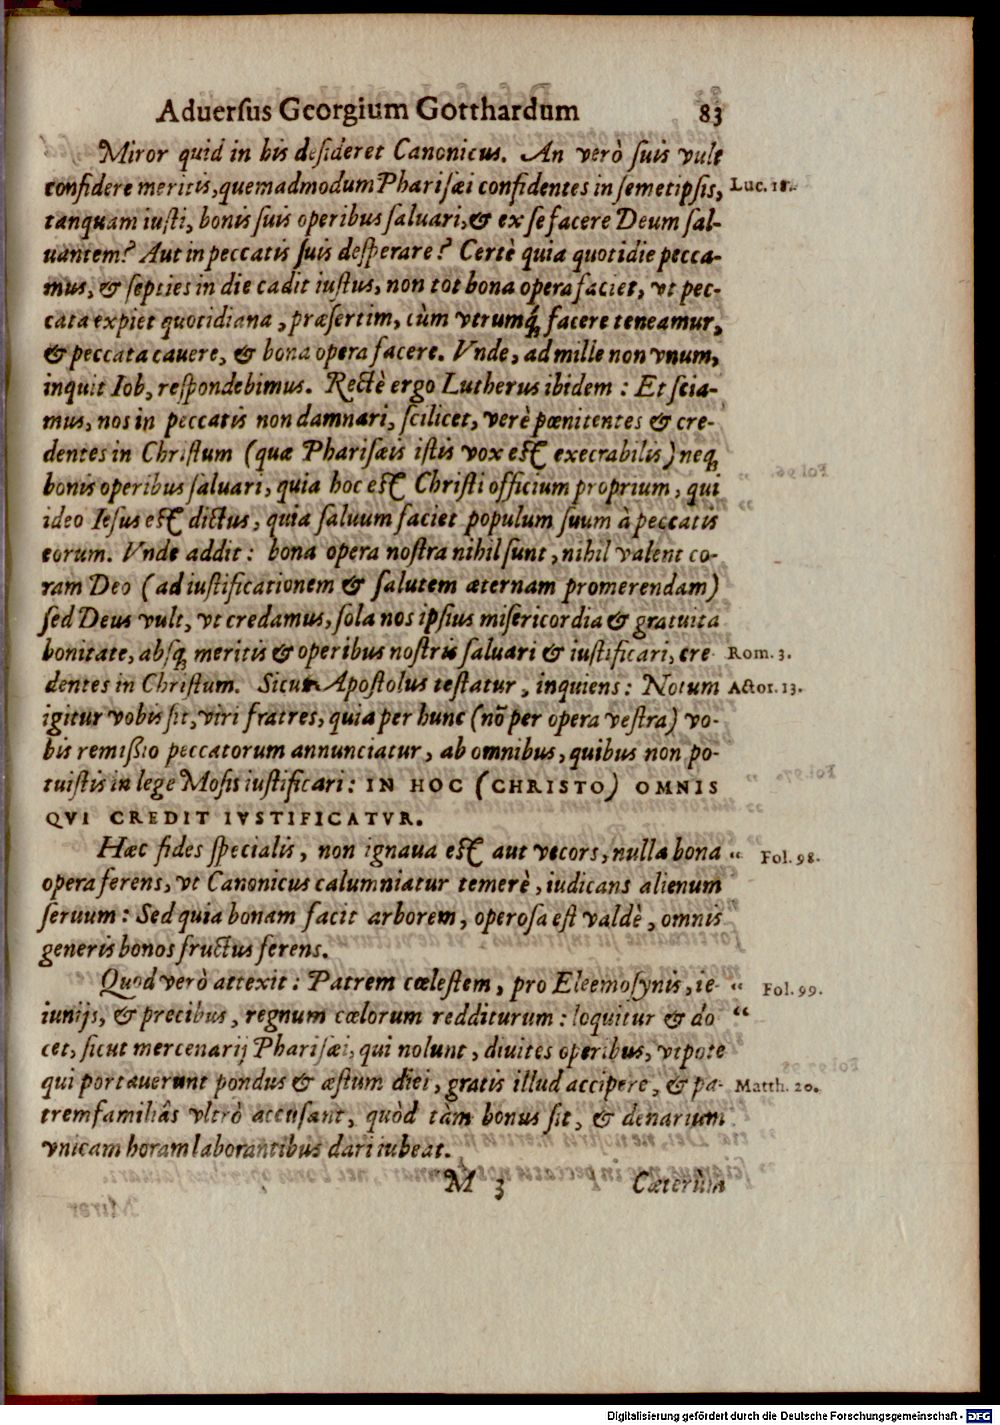 Adversus Georgium Gotthardum 83
Miror quid in his desideret Canonicus. An verò suis vult
confidere meritis, quemadmodum Pharisæi confidentes in semetipsis, Luc. 18.
tanquam iusti, bonis suis operibus saluari, & ex se facere Deum sal-
uantem? Aut in peccatis suis desperare? Certè quia quotidie pecca-
mus, & septies in die cadit iustus, non tot bona opera faciet, vt pec-
cata expiet quotidiana, præsertim, cùm vtrumq́; facere teneamur,
& peccata cauere, & bona opera facere. Vnde, ad mille non vnum,
inquit Iob, respondebimus. Rectè ergo Lutherus ibidem: Et scia-
mus, nos in peccatis non damnari, scilicet, verè pœnitentes & cre-
dentes in Christum (quæ Pharisæis istis vox est execrabilis) neq;
bonis operibus saluari, quia hoc est Christi officium proprium, qui
ideo Iesus est dictus, quia saluum faciet populum suum à peccatis
eorum. Vnde addit: bona opera nostra nihil sunt, nihil valent co-
ram Deo (ad iustificationem & salutem æternam promerendam)
sed Deus vult, vt credamus, sola nos ipsius misericordia & gratuita
bonitate, absq; meritis & operibus nostris saluari & iustificari, cre Rom. 3.
dentes in Christum. Sicut Apostolus testatur, inquiens: Notum Actor. 13.
igitur vobis sit, viri fratres, quia per hunc (nō per opera vestra) vo-
bis remißio peccatorum annunciatur, ab omnibus, quibus non po-
tuistis in lege Mosis iustificari: IN HOC (CHRISTO) OMNIS
QVI CREDIT IVSTIFICATVR.
Hæc fides specialis, non ignaua est aut vecors, nulla bona “ Fol. 98.
opera ferens, vt Canonicus calumniatur temerè, iudicans alienum
seruum: Sed quia bonam facit arborem, operosa est valdè, omnis
generis bonos fructus ferens.
Quod verò attexit: Patrem cœlestem, pro Eleemosynis, ie- “ Fol. 99.
iunijs, & precibus, regnum cœlorum redditurum: loquitur & do “
cet, sicut mercenarij Pharisæi, qui nolunt, diuites operibus, vtpote
qui portauerunt pondus & æstum diei, gratis illud accipere, & pa- Matth. 20.
tremfamiliâs vltrò accusant, quòd tàm bonus sit, & denarium
vnicam horam laborantibus dari iubeat.
M 3 Cæterùm
Digitalisierung gefördert durch die Deutsche Forschungsgemeinschaft - DFG